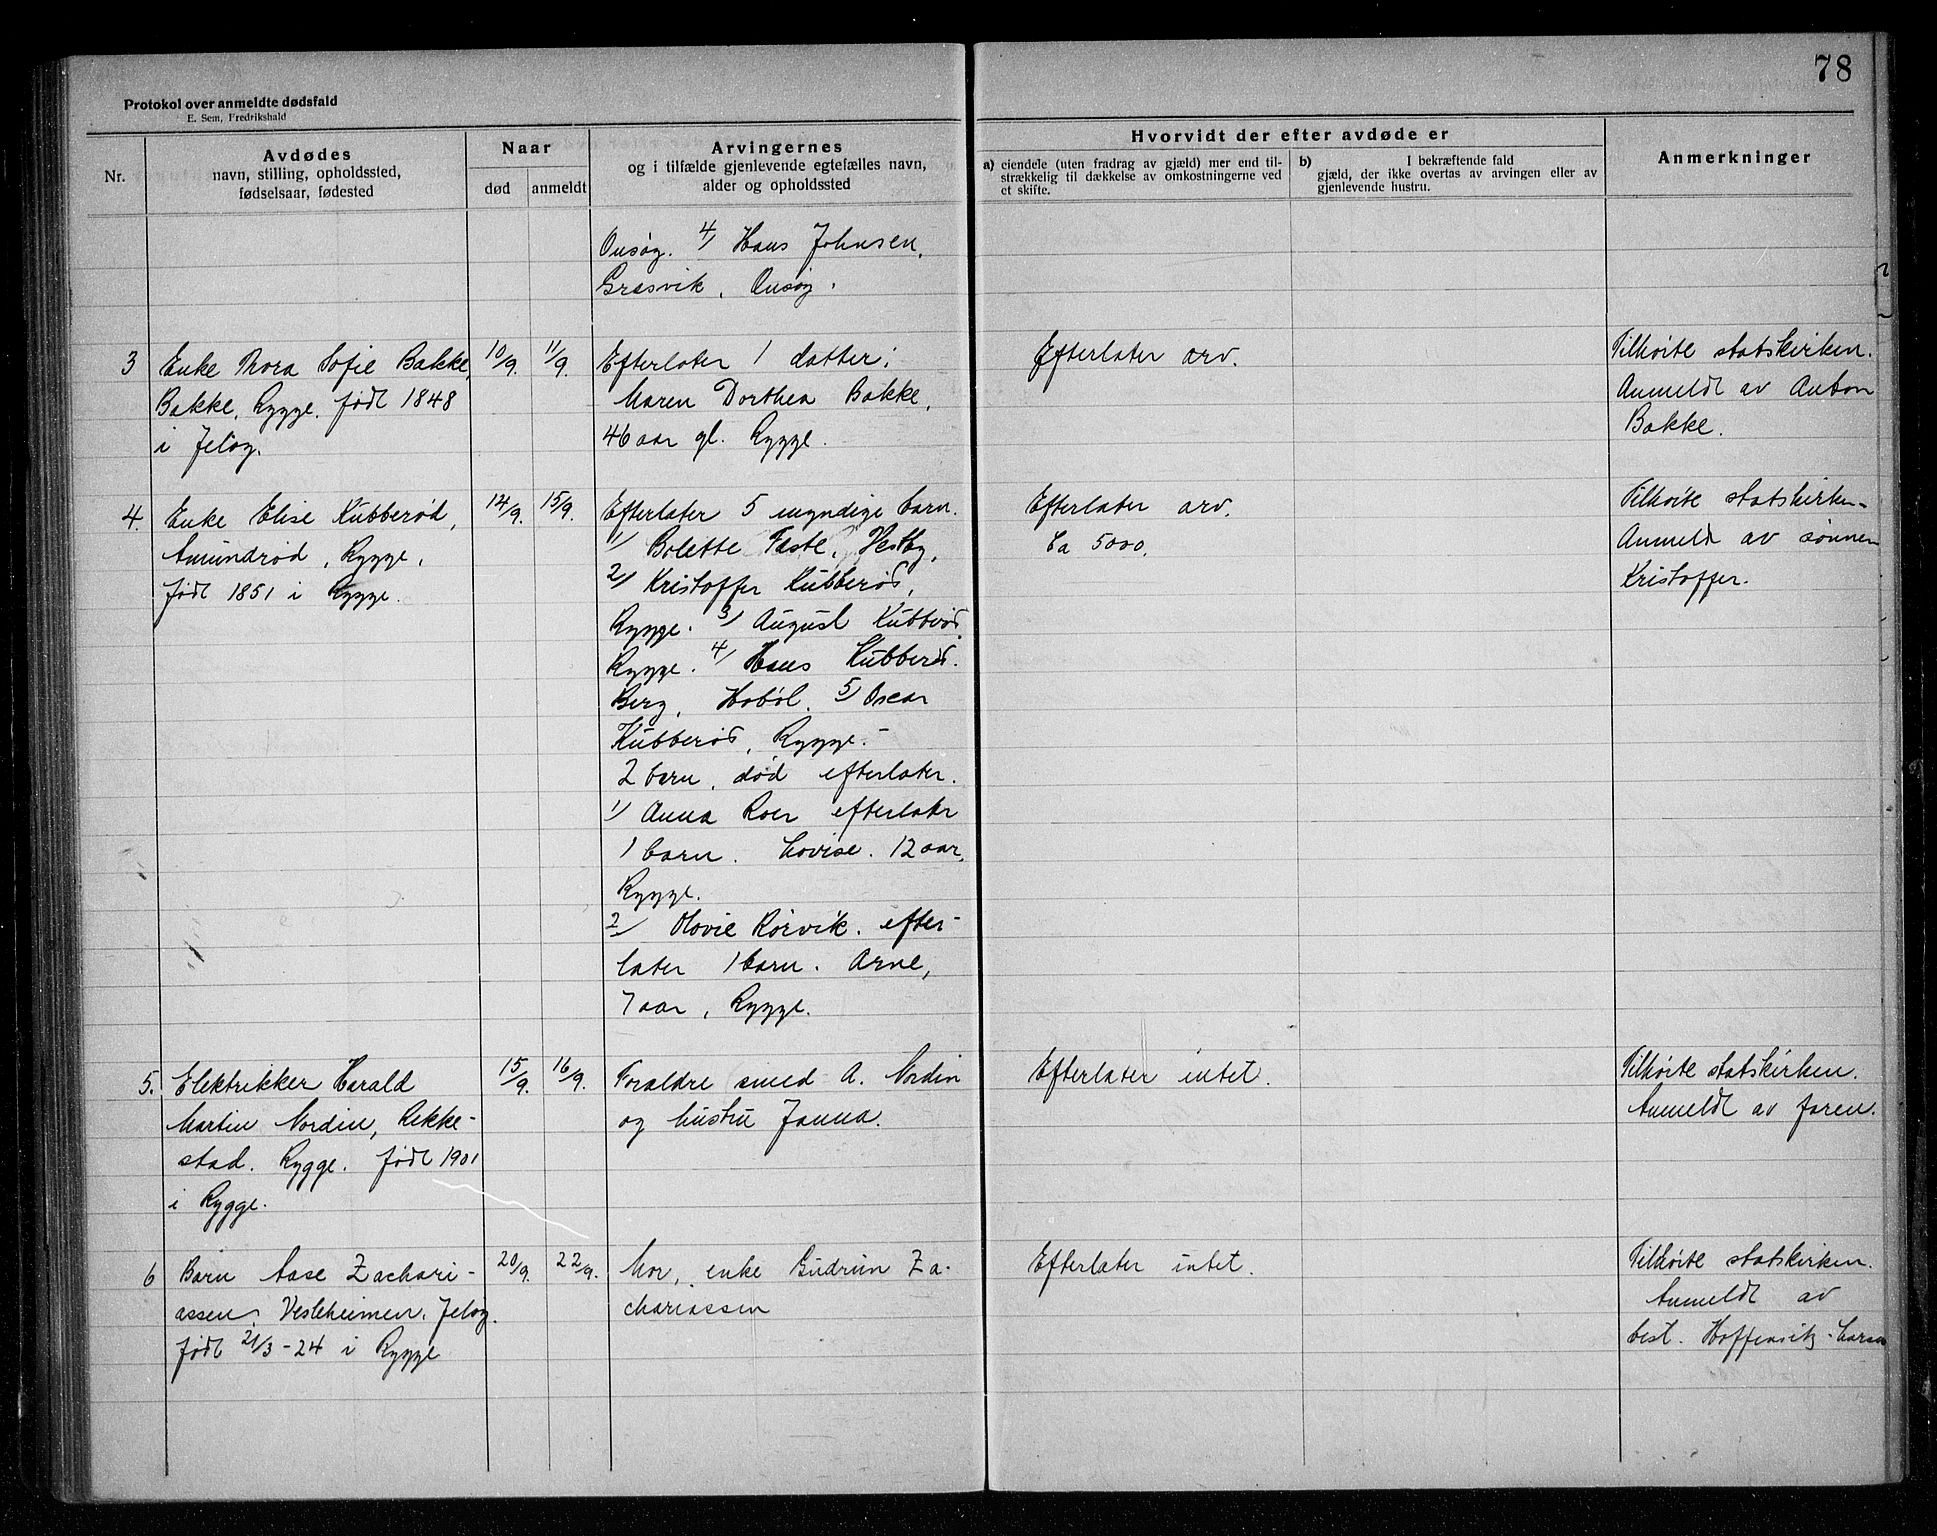 78
Protokol over anmeldte dødsfald
E. Sem, Fredrikshald
Nr.
Avdødes
navn, stilling, opholdssted,
fødselsaar, fødested
Naar
død
anmeldt
Arvingernes
og i tilfælde gjenlevende egtefælles navn,
alder og opholdssted
Hvorvidt der efter avdøde er
a) eiendele (uten fradrag av gjæld) mer end til-
strækkelig til dækkelse av omkostningerne ved
et skifte.
b) I bekræftende fald
gjæld, der ikke overtas av arvingen eller av
gjenlevende hustru.
Anmerkninger
Onsøy. 4/ Hans Johnsen,
Græsvik, Onsøy.
3
Enke Thora Sofie Bakke,
Bakke, Rygge. født 1848
i Jeløy.
10/9.
11/9.
Efterlater 1 datter:
Maren Dorthea Bakke,
46 aar gl. Rygge.
Efterlater arv.
Tilhørte statskirken.
Anmeldt av Anton
Bakke.
4.
Enke Elise Kubberød,
Amundrød, Rygge,
født 1851 i Rygge.
14/9.
15/9.
Efterlater 5 myndige barn.
1/ Bolette Faste, Vestby,
2/ Kristoffer Kubberød,
Rygge. 3/ August Kubberød
Rygge. 4/ Hans Kubberød.
Berg, Hobøl. 5/ Oscar
Kubberød, Rygge.-
2 barn, død efterlater.
1/ Anna Roer efterlater
1 barn. Lovise. 12 aar,
Rygge.
2/ Olovie Rørvik. efter-
later 1 barn. Arne,
7 aar, Rygge.
Efterlater arv.
Ca 5000.
Tilhørte statskirken-
Anmeldt av sønnen
Kristoffer.
5.
Elektrikker Harald
Martin Nordin, Rekke-
stad. Rygge. født 1901
i Rygge.
15/9.
16/9.
Foraldre smed A. Nordin
og hustru Janna.
Efterlater intet.
Tilhørte statskirken.
Anmeldt av faren.
6
Barn Aase Zachari-
assen, Vesleheimen, Jeløy.
født 21/3-24 i Rygge
20/9.
22/9.
Mor, enke Gudrun Za-
chariassen
Efterlater intet.
Tilhørte statskirken.
Anmeldt av
best. Hoffensitz-Larsen